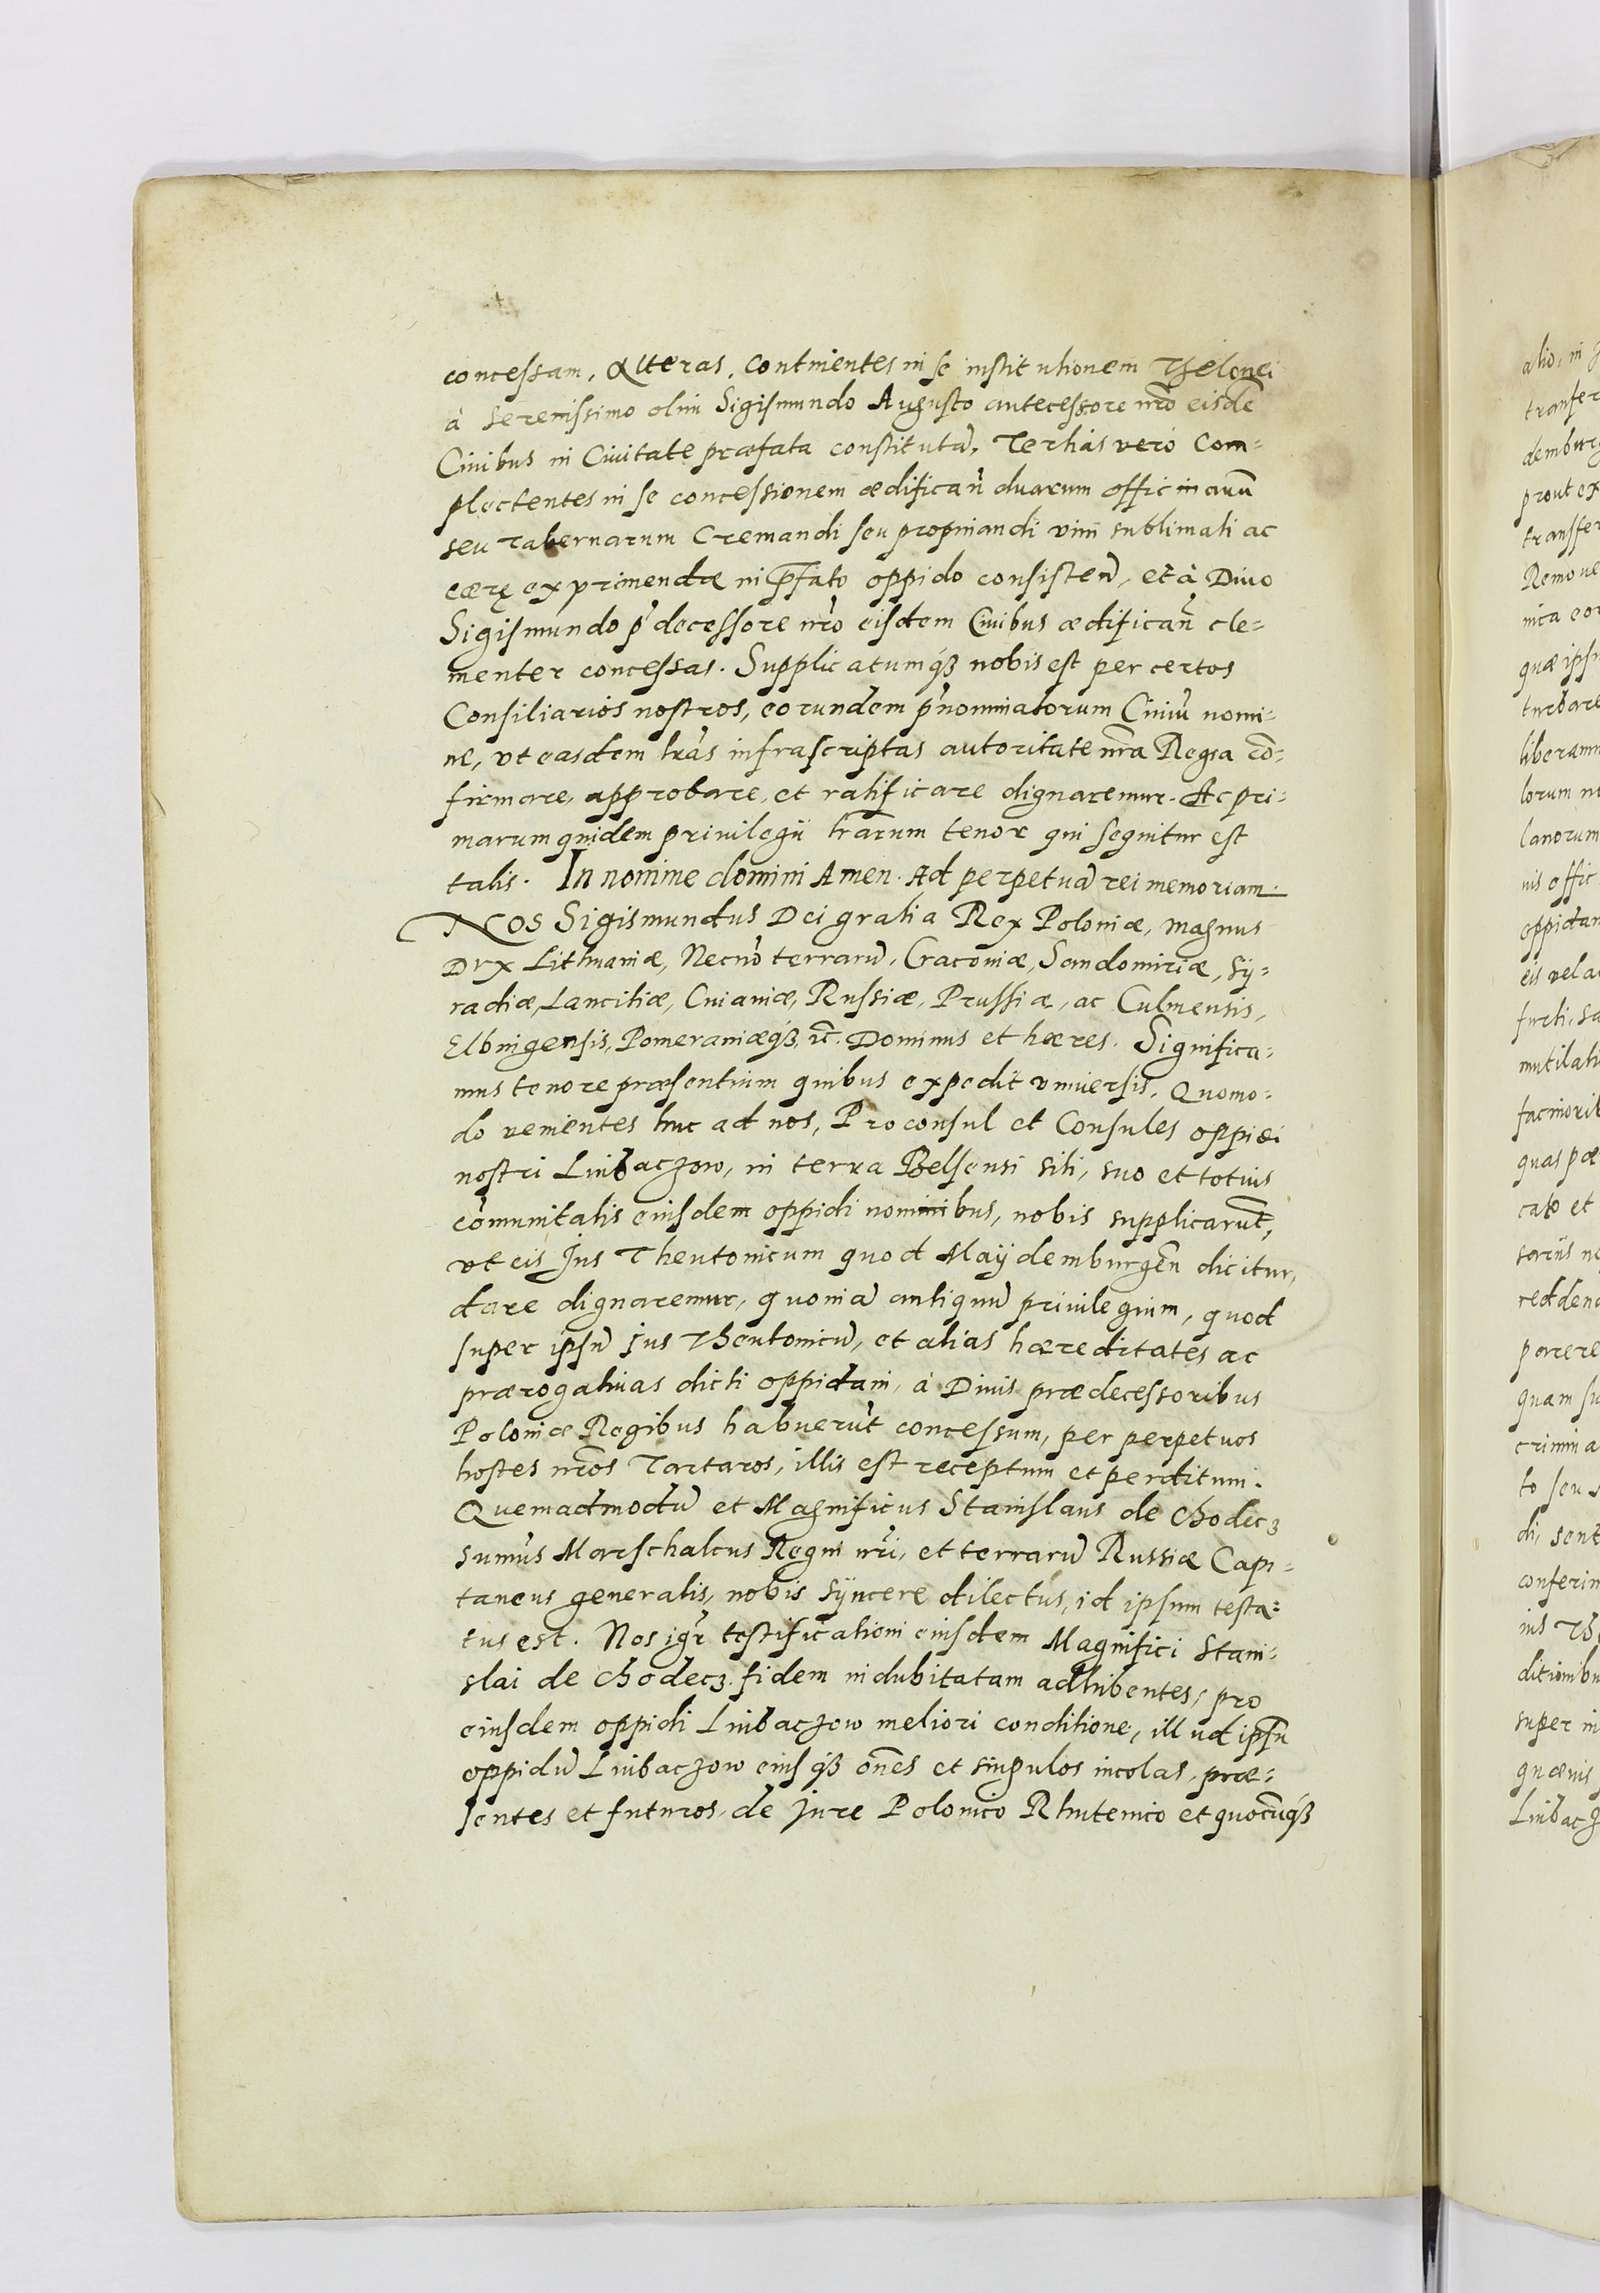 concessam, Alteras, continentes in se institutionem Thelonei
à Serenissimo olim Sigismundo Augusto antecessore nr̃o eisdẽ
Ciuibus in Ciuitate præfata constitutã, Tertias vero Com-
plectentes in se concessionem ædificañ duarum officinarũ
seu Tabernarum Cremandi seu propinandi vini sublimati ac
cæræ exprimendæ in p̃fato oppido consisteñ, et à Diuo
Sigismundo p̃decessore nr̃o eisdem Ciuibus ædificañ cle-
menter concessas. Supplicatumq3 nobis est per certos
Consiliarios nostros, eorundem p̃nominatorum Ciuiũ nomi-
ne, vt easdem lr̃as infrascriptas autoritate nr̃a Regia cõ-
firmare, approbare, et ratificare dignaremur. Ac pri-
marum quidem priuilegii lr̃arum tenor qui sequitur est
talis. In nomine domini Amen. Ad perpetuã rei memoriam.
Nos Sigismundus Dei gratia Rex Poloniæ, magnus
Dux Lithuaniæ, Necnõ terrarũ, Cracouiæ, Sandomiriæ, Sy-
radiæ, Lanciciæ, Cuiauiæ, Russiæ, Prussiæ, ac Culmensis,
Elbingensis, Pomeraniæq3, &c. Dominus et hæres. Significa-
mus tenore præsentium quibus expedit vniuersis, Quomo-
do venientes huc ad nos, Proconsul et Consules oppidi
nostri Liubaczow, in terra Belsensi siti, suo et totius
cõmunitatis eiusdem oppidi nominibus, nobis supplicarũt,
vt eis Jus Theutonicum quod Maÿdemburgeñ dicitur,
dare dignaremur, quoniã antiquũ priuilegium, quod
super ipsũ Jus Theutonicũ, et alias hæreditates ac
prærogatiuas dicti oppidani, à Diuis prædecessoribus
Poloniæ Regibus habuerũt concessum, per perpetuos
hostes nr̃os Tartaros, illis est receptum et perditum.
Quemadmodũ et Magnificus Stanislaus de Chodecz
sum̃us Marschalcus Regni nr̃i, et terrarũ Russiæ Capi-
taneus generalis, nobis sÿncere dilectus, id ipsum testa-
tus est. Nos igr̃ testificationi eiusdem Magnifici Stani-
slai de Chodecz. fidem indubitatam adhibentes, pro
eiusdem oppidi Liubaczow meliori conditione, illud ipsũ
oppidũ Liubaczow eiusq3 om̃es et singulos incolas, præ-
sentes et futuros, de Jure Polonico Rhutenico et quocũq3
alio, in
transfer
demburg
prout ex
transfer
Remoue
nica eor
quæ ipsu
turbare
liberamu
lorum
lanorum
uis offic
oppidan
eis vel a
furti, sa
mutilati
facinorib
quas pæ
cato et
sariis ne
reddend
parere
quam su
crimina
to seu
di, sent
conferim
ius Th
ditionibu
super in
quæuis
Liubacz